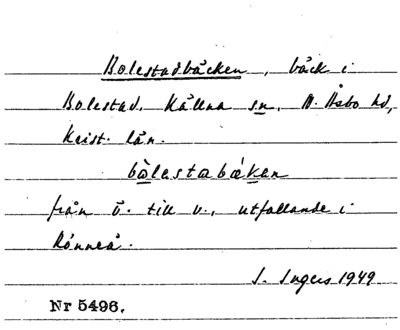 Bolestadbäcken, bäck i
Bolestad, Källna sn, N. Åsbo hd,
Krist. län.
bòlestabǽkan
från ö. till v., utfallande i
Rönneå.
I. Ingers 1949
Nr 5496.